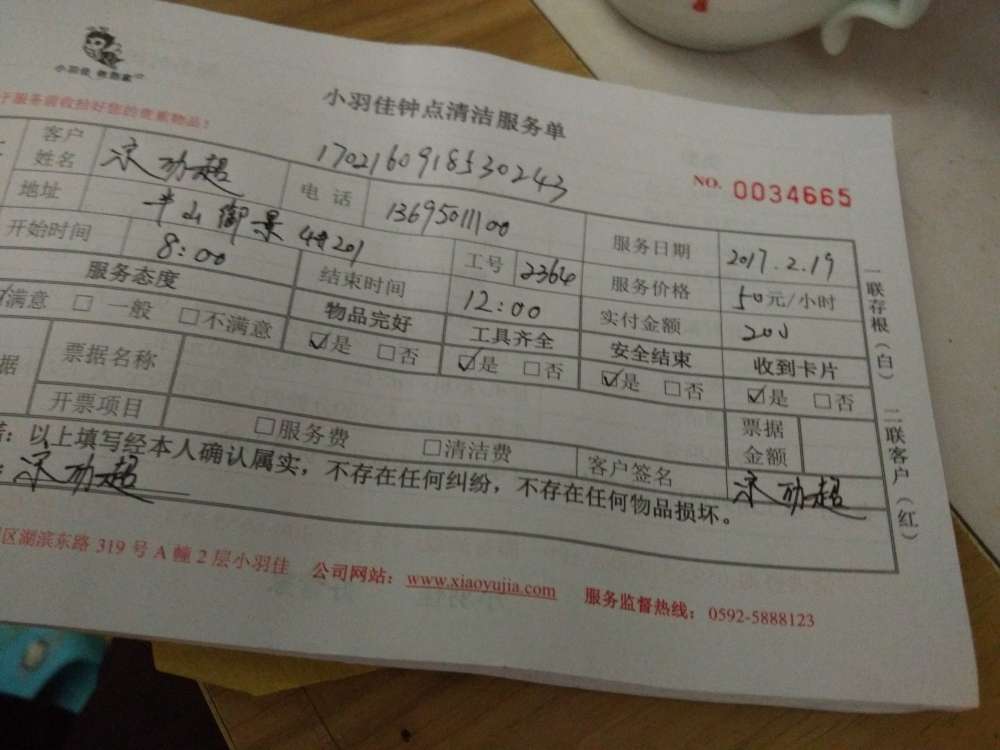 小羽佳 救急家
小羽佳钟点清洁服务单
于服务前收拾好您的贵重物品!
1702160918530243
NO. 0034665
客户姓名 宋功超 电话 13695011100 服务日期 2017.2.19
地址 半山御景4#201 工号 2364 服务价格 50元/小时
开始时间 8:00 结束时间 12:00 实付金额 200
服务态度 物品完好 工具齐全 安全结束 收到卡片
☑满意 □一般 □不满意 ☑是 □否 ☑是 □否 ☑是 □否 ☑是 □否
据 票据名称 票据金额
开票项目 □服务费 □清洁费 客户签名 宋功超
：以上填写经本人确认属实，不存在任何纠纷，不存在任何物品损坏。
宋功超
区湖滨东路319号A幢2层小羽佳 公司网站：www.xiaoyujia.com 服务监督热线：0592-5888123
一联存根（白） 二联客户（红）